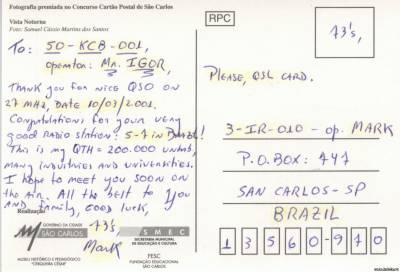 Fotografia premiada no Concurso Cartão Postal de São Carlos
Vista Noturna
Foto: Samuel Cássio Martins dos Santos
To: 50-KCB-001,
operator: Mr. IGOR,
THANK YOU FOR NICE QSO ON
27 MHz, DATE 10/03/2001.
Congratulations for your very
good radio station: 5-7 in Brazil!
This is my QTH = 200.000 unhab,
many industries and universities.
I hope to meet you soon on
the air. All the best to you
and family, good luck,
73's
Mark
Realização
GOVERNO DA CIDADE
SÃO CARLOS
SMEC
SECRETARIA MUNICIPAL
DE EDUCAÇÃO E CULTURA
MUSEU HISTÓRICO E PEDAGÓGICO
"CERQUEIRA CÉSAR"
FESC
FUNDAÇÃO EDUCACIONAL
SÃO CARLOS
RPC
73's,
PLEASE, QSL CARD.
3-IR-010 - op. MARK
P.O.BOX: 747
SAN CARLOS-SP
BRAZIL
13560-970